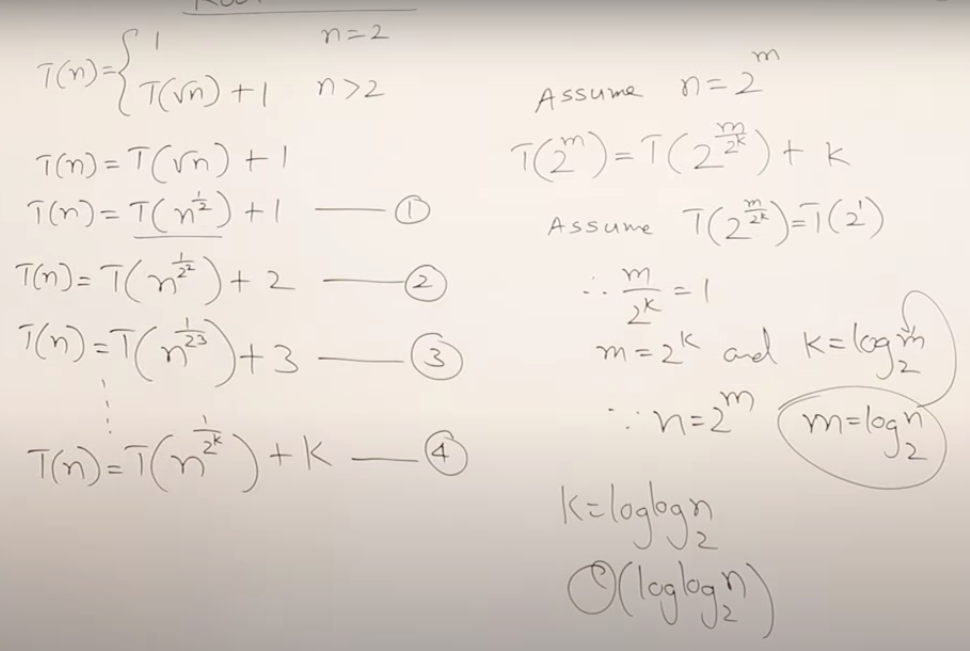 T(n) = { 1 n = 2
T(√n) + 1 n > 2
T(n) = T(√n) + 1
T(n) = T(n^(1/2)) + 1 —— ①
T(n) = T(n^(1/2²)) + 2 —— ②
T(n) = T(n^(1/23)) + 3 —— ③
⋮
T(n) = T(n^(1/2^k)) + K —— ④
Assume n = 2^m
T(2^m) = T(2^(m/2^k)) + k
Assume T(2^(m/2^k)) = T(2^1)
∴ m/2^k = 1
m = 2^k and k = log₂m
∵ n = 2^m m = log₂n
k = loglog₂n
Θ(loglog₂n)